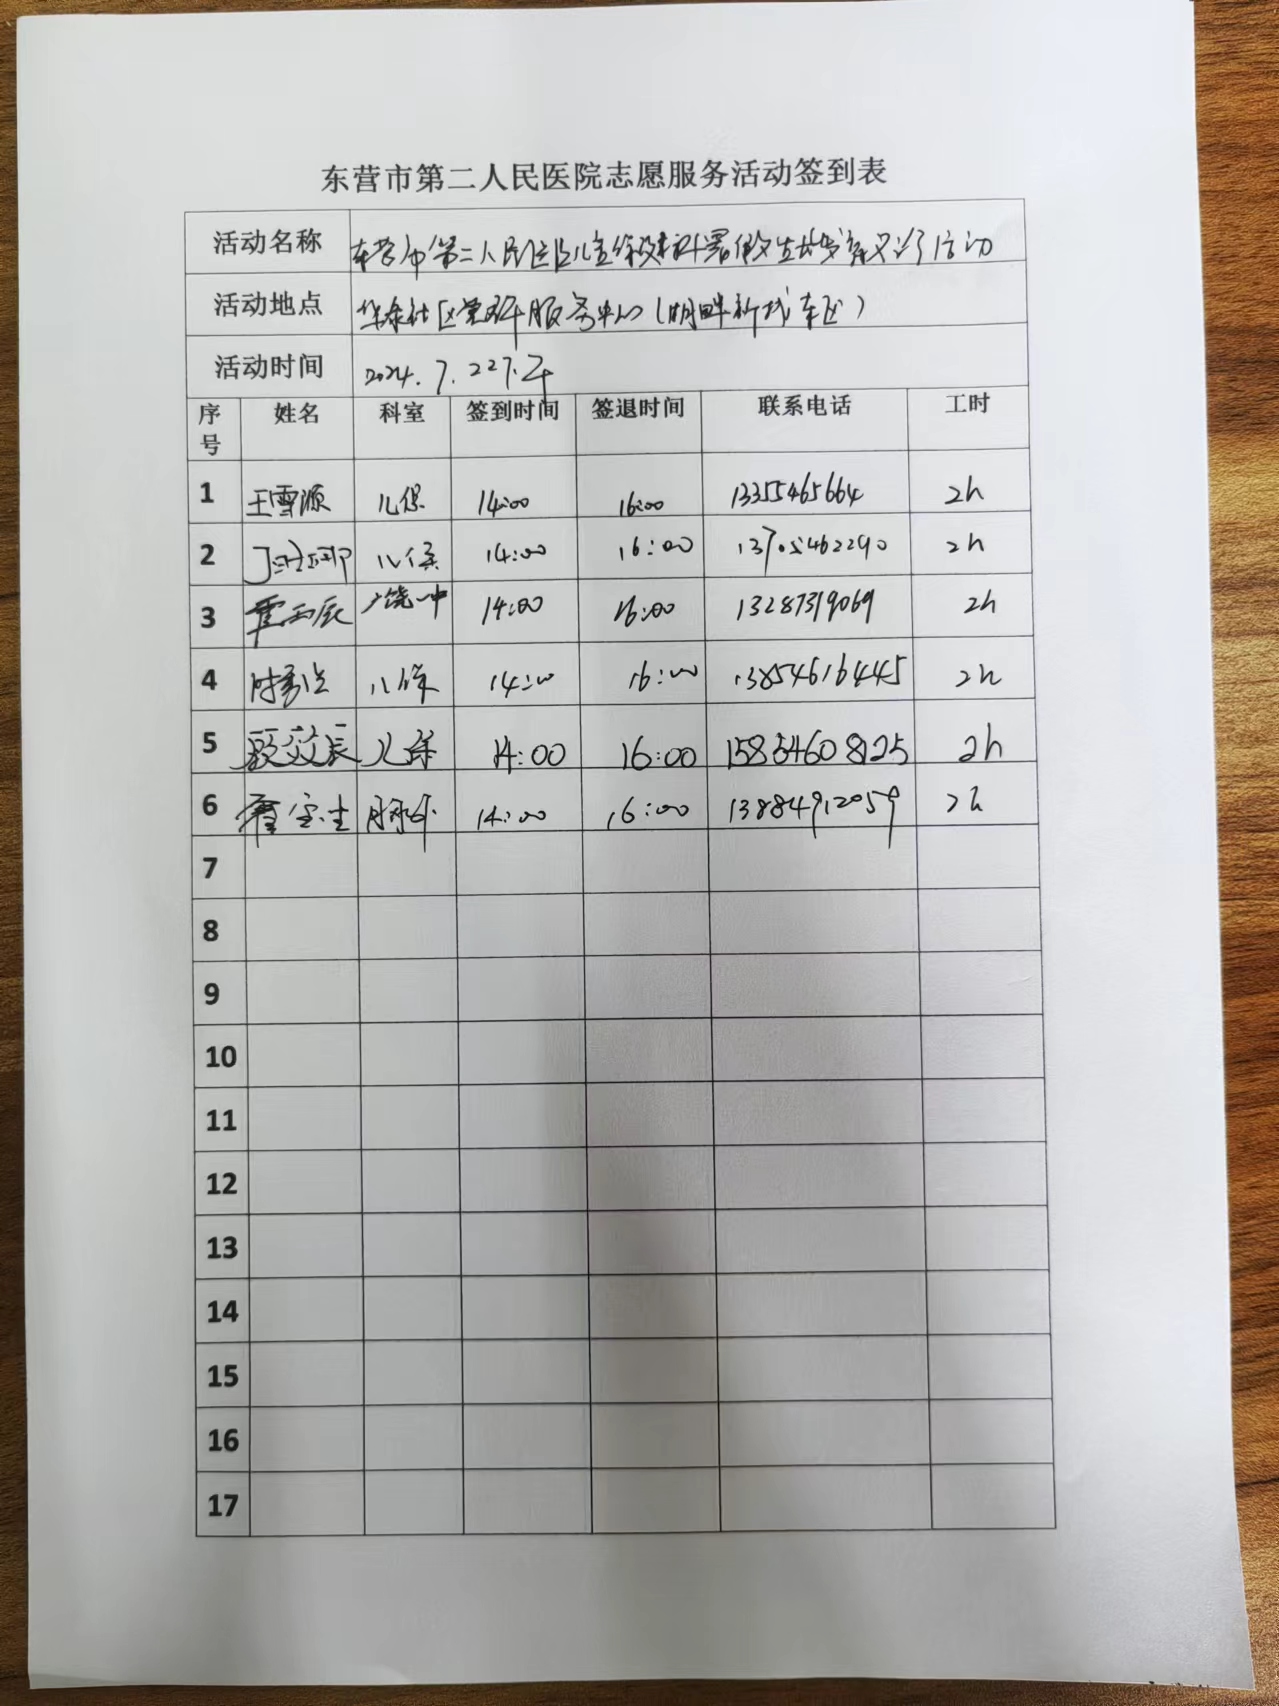 东营市第二人民医院志愿服务活动签到表
活动名称 东营市第二人民医院儿童保健科暑假生长发育义诊活动
活动地点 华泰社区党群服务中心(湖畔新城东区)
活动时间 2024.7.22下午
序号 姓名 科室 签到时间 签退时间 联系电话 工时
1 王雪源 儿保 14:00 16:00 13355465664 2h
2 儿保 14:00 16:00 13705462290 2h
3 霍雨辰 广饶一中 14:00 16:00 13287319069 2h
4 儿保 14:00 16:00 13854616445 2h
5 儿保 14:00 16:00 15854608125 2h
6 14:00 16:00 13884912059 2h
7
8
9
10
11
12
13
14
15
16
17